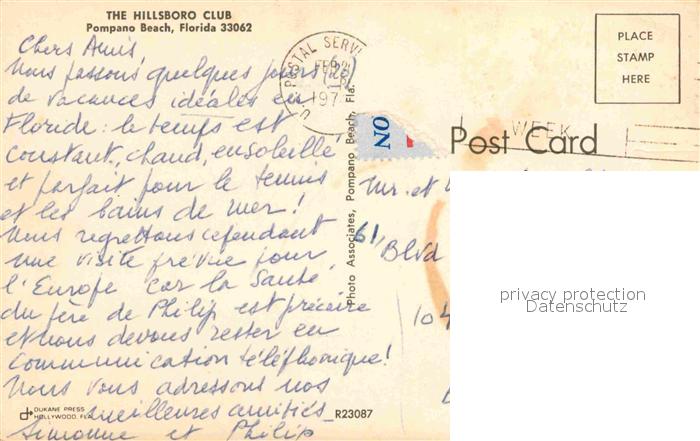 THE HILLSBORO CLUB
Pompano Beach, Florida 33062
Chers Amis
Nous passons quelques jours
de vacances idéales en
Floride : le temps est
constant, chaud, ensoleillé
et parfait pour le tennis
et les bains de mer !
Nous regrettons cependant
une visite prévue pour
l'Europe car la Santé
du père de Philip est précaire
et nous devons rester en
Communication téléphonique !
Nous vous adressons nos
meilleures amitiés
Simonne et Philip
DUKANE PRESS
HOLLYWOOD, FLA.
R23087
POSTAL SERVI
FEB
197
Photo Associates, Pompano Beach, Fla.
NO
WEEK
PLACE
STAMP
HERE
Post Card
Mr. et
61, Blvd
104
privacy protection
Datenschutz